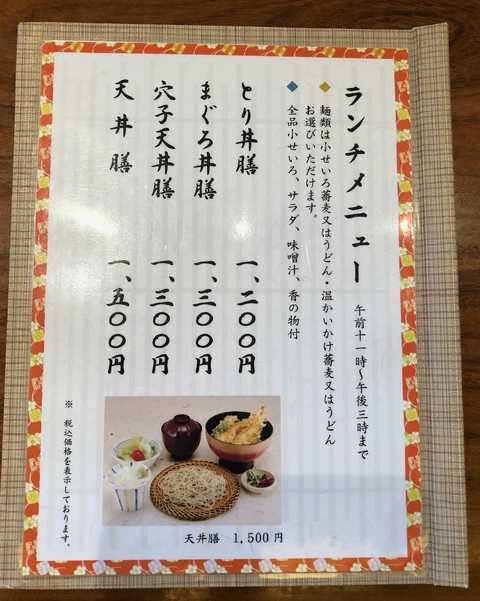 ランチメニュー 午前十一時〜午後三時まで
◆ 麺類は小せいろ蕎麦又はうどん・温かいかけ蕎麦又はうどん
お選びいただけます。
◆ 全品小せいろ、サラダ、味噌汁、香の物付
とり丼膳 一、二〇〇円
まぐろ丼膳 一、三〇〇円
穴子天丼膳 一、三〇〇円
天丼膳 一、五〇〇円
※ 税込価格を表示しております。
天丼膳 1,500円